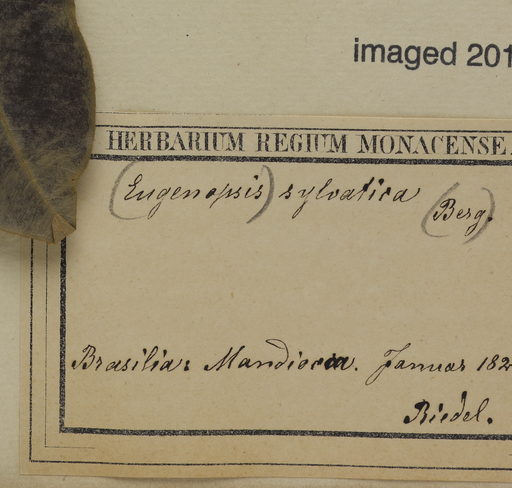 imaged 201
HERBARIUM REGIUM MONACENSE.
(Eugenopsis) sylvatica (Berg).
Brasilia: Mandiocca. Januar 182
Riedel.